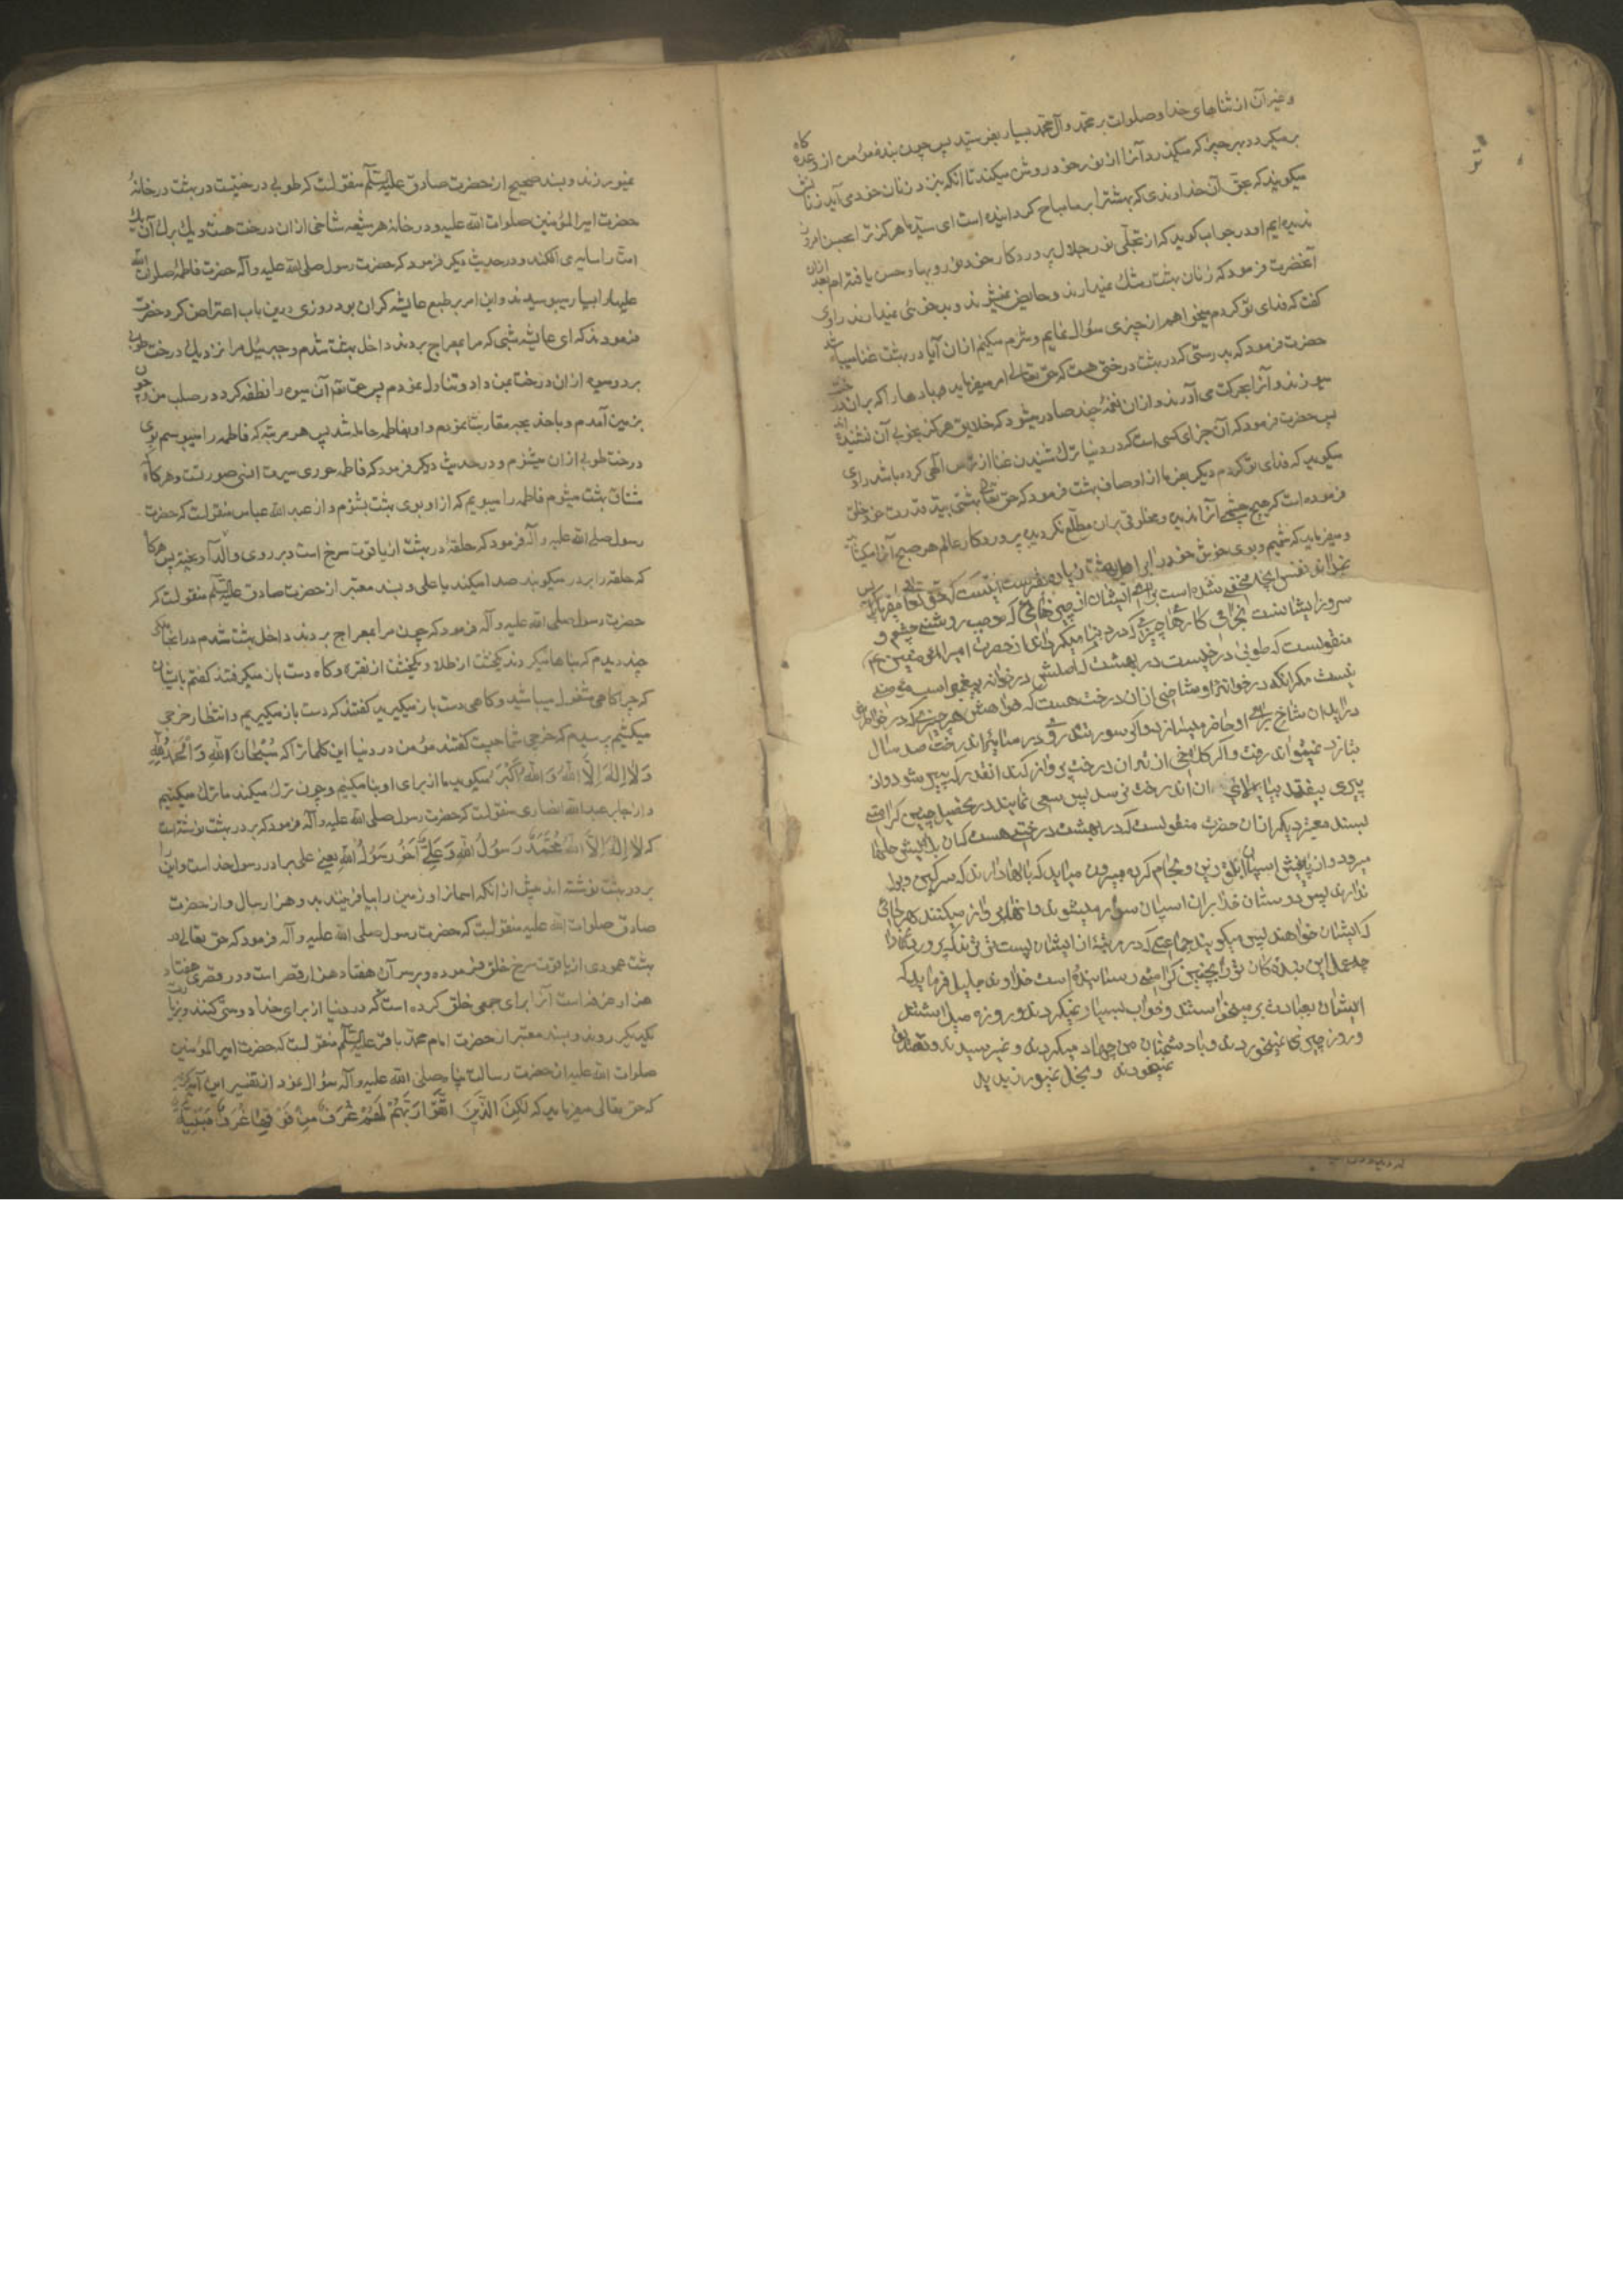 وغیر آن از ثناهای خدا وصلوات بر محمد وآل محمد بسیار بفرستید پس چون بنده مؤمن از نزد
برمیکردد بهر چیز که میکذرد آنرا از نور خود روشن میکند تا انکه بنزد زنان خود می آید زنانش
میکویند که بحق آن خداوندی که بهشترا بر ما مباح کردانیده است ای سید ما هرکز ترا بحسن امروز
ندیده ایم او در جواب کوید که از تجلّی نور جلال پروردکار خود نور وبها وحسن یافته ام بعد ازان
آنحضرت فرمود که زنان بهشت رشک نمیدارند وحایض نمیشوند وبدخوئی نمیدارند راوی
کفت که فدای تو کردم میخواهم از چیزی سؤال نمایم وشرم میکنم ازان آیا در بهشت غنا میباشد
حضرت فرمود که بدرستی که در بهشت درختی هست که حق تعالی امر میفرماید بادها را که بران درخت
میوزند وآنرا بحرکت می آورند وازان نغمۀ چند صادر میشود که خلایق هرکز بخوبی آن نشنیده اند
پس حضرت فرمود که آن جزای کسی است که در دنیا ترک شنیدن غنا از ترس الهی کرده باشد راوی
میکوید که فدای تو کردم دیکر بفرما از اوصاف بهشت فرمود که حق تعالی بهشتی بید قدرت خود خلق
فرموده است که هیچ چشمی آنرا ندیده ومخلوقی بران مطّلع نکردیده پروردکار عالم هر صبح آنرا میکشاید
ومیفرماید که شمیم وبوی خوش خود را برای اهل بهشت زیاده کن
سرور ایشانست بجزای کارها چیزی که در دنیا میکردند از حضرت امیر المؤمنین ع
منقولست که طوبی درختیست در بهشت که اصلش در خوانه پیغمبر است مومنی
نیست مکر انکه در خوانۀ او شاخی ازان درخت هست که خواهش هر چیزی که در خواطرش
دراید ان شاخ برای او حاضر میسازد واکر سوار تندروی در سایۀ ان درخت صد سال
بتازد نمیتواند رفت واکر کلاغی از زیر ان درخت پرواز کند انقدر که پیر شود واز
پیری بیفتد ببالای ان درخت نرسد پس سعی نمایند در تحصیل چنین کرامتی
بسند معتبر دیکر ازان حضرت منقولست که در بهشت درختی هست که از بالایش حلها
میرود واز پائینش اسپان ابلق زین ولجام کرده بیرون میاید که بالها دارند که سرکین وبول
ندارند پس دوستان خدا بران اسپان سوار میشوند وانها پرواز میکنند هر جائی
که ایشان خواهند پس میکویند جماعتی که در مرتبۀ از ایشان پست ترند که پروردکارا
چه عمل این بنده کان تورا بچنین کرامتی رسانیده است خداوند جلیل فرماید که
ایشان بعبادت برمیخواستند وخواب بسیار نمیکردند وروزه میداشتند
وروز چیزی نمیخوردند وبا دشمنان من جهاد میکردند ونمیترسیدند وتصدق
مینمودند وبخل نمیورزیدید
نمیورزند وبسند صحیح از حضرت صادق علیه السلام منقولست که طوبی درختیست در بهشت در خانۀ
حضرت امیر المؤمنین صلوات الله علیه ودر خانۀ هر شیعه شاخی ازان درخت هست ویک برک آن یک
امت را سایه می افکند ودر حدیث دیکر فرمود که حضرت رسول صلی الله علیه وآله حضرت فاطمۀ صلوات الله
علیها را بسیار میبوسیدند واین امر بر طبع عایشه کران بود روزی درین باب اعتراض کرد حضرت
فرمودند که ای عایشه شبی که مرا بمعراج بردند داخل بهشت شدم وجبرئیل مرا نزدیک درخت طوبی
برد ومیوه ازان درخت بمن داد وتناول نمودم پس حق تعالی آن میوه را نطفه کرد در صلب من وچون
بزمین آمدم وبا خدیجه مقاربت نمودم واو بفاطمه حامله شد پس هر مرتبه که فاطمه را میبوسم بوی
درخت طوبی ازان میشنوم ودر حدیث دیکر فرمود که فاطمه حوری سیرت انسی صورتست وهرکاه
مشتاق بهشت میشوم فاطمه را میبویم که از او بوی بهشت بشنوم واز عبد الله عباس منقولست که حضرت
رسول صلی الله علیه وآله فرمود که حلقۀ در بهشت از یاقوت سرخ است در بر روی طلا آویخته پس هرکاه
که حلقه را بر در میکوبند صدا میکند یا علی وبسند معتبر از حضرت صادق علیه السلام منقولست که
حضرت رسول صلی الله علیه وآله فرمود که چون مرا بمعراج بردند داخل بهشت شدم در انجا ملکی
چند دیدم که بناها میکردند یکخشت از طلا ویکخشت از نقره وکاه دست باز میکرفتند کفتم بایشان
که چرا کاهی مشغول میباشید وکاهی دست باز میکیرید کفتند که دست باز میکیریم وانتظار خرجی
میکشیم پرسیدم که خرجی شما چیست کفتند مؤمن در دنیا این کلمات را که سُبْحَانَ اللهِ وَالْحَمْدُ لِلّٰهِ
وَلَا إِلٰهَ إِلَّا اللهُ وَاللهُ أَکْبَرُ میکوید ما از برای او بنا میکنیم وچون ترک میکند ما ترک میکنیم
واز جابر عبد الله انصاری منقولست که حضرت رسول صلی الله علیه وآله فرمود که بر در بهشت نوشته است
که لَا إِلٰهَ إِلَّا اللهُ مُحَمَّدٌ رَسُولُ اللهِ وَعَلِیٌّ أَخُو رَسُولِ اللهِ یعنی علی برادر رسول خداست واین را
بر در بهشت نوشته اند پیش از انکه اسمانرا وزمین را بیافرینند بدو هزار سال واز حضرت
صادق صلوات الله علیه منقولست که حضرت رسول صلی الله علیه وآله فرمود که حق تعالی در
بهشت عمودی از یاقوت سرخ خلق فرموده وبر سر آن هفتاد هزار قصر است ودر قصری هفتاد
هزار غرفه است آنرا برای جمعی خلق کرده است که در دنیا از برای خدا دوستی کنند وبزیارت
یکدیکر روند وبسند معتبر از حضرت امام محمد باقر علیه السلام منقولست که حضرت امیر المؤمنین
صلوات الله علیه از حضرت رسالت پناه صلی الله علیه وآله سؤال نمود از تفسیر این آیه کریمه
که حق تعالی میفرماید که لٰکِنِ الَّذِینَ اتَّقَوْا رَبَّهُمْ لَهُمْ غُرَفٌ مِنْ فَوْقِهَا غُرَفٌ مَبْنِیَّةٌ